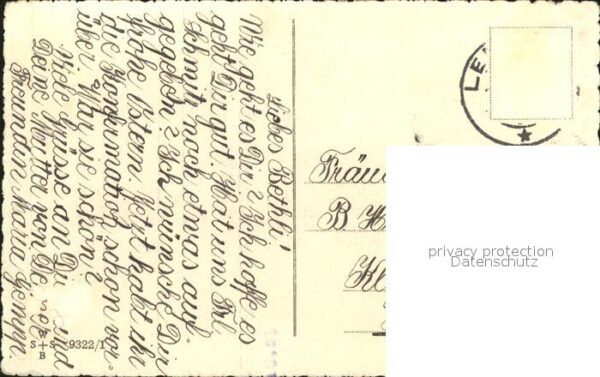 Liebes Bethli!
Wie geht es Dir? Ich hoffe es
geht Dir gut. Hat uns Frl
Schmitz noch etwas auf-
gegeben? Ich wünsche Dir
frohe Ostern. Jetzt habt ihr
die Konfirmation schon vor-
über. War sie schön?
Viele Grüsse an Dich und
Deine Mutter von Deiner
Freundin Maria
W
S+S 9322/1
B
LE
Fräu
B
Kl
privacy protection
Datenschutz